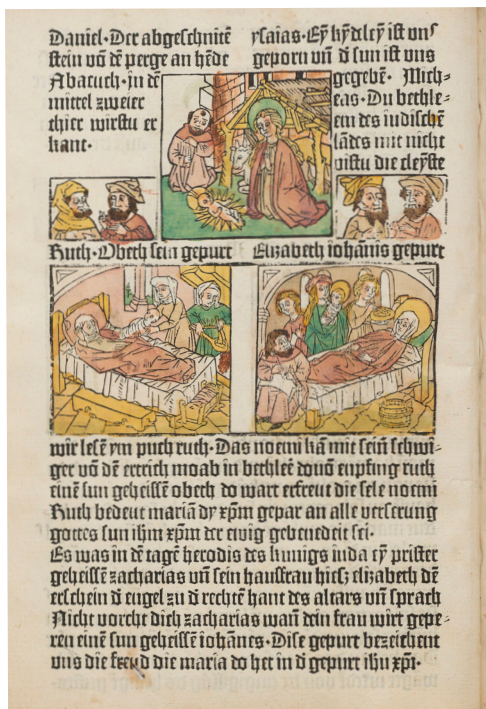 Daniel · Der abgeschnitē
stein vō dē perge an hēde
Abacuch · in dē
mittel zweier
thier wirstu er
kant ·
ysaias · Eÿ kÿdleÿ ist vns
geporn vn̄ d̄ sun ist vns
gegebē · Mich⸗
eas · Du bethle⸗
em des iudischē
lādes mit nicht
pistu die cleÿste
Ruth · Obeth sein gepurt
Elizabeth iohānis gepurt
wir lesē ym puch ruth · Das noemi kā mit seim̄ schwi⸗
ger vō dē ertrich moab in bethleē douō enpfing ruth
einē sun geheissē obeth do wart erfreut die sele noemi
Ruth bedeut mariā dy xp̄m gepar an alle verserung
gottes sun ihm xp̄m der ewig gebenedeit sei ·
Es was in dē tagē herodis des kunigs iuda eÿ prister
geheissē zacharias vn̄ sein hausfrau hiesz elizabeth dē
erschein d̄ engel zu d̄ rechtē hant des altars vn̄ sprach
Nicht vorcht dich zacharias wan̄ dein frau wirt gepe⸗
ren einē sun geheissē iohānes · Dise gepurt bezeichent
vns die freud die maria do het in d̄ gepurt ihū xp̄i ·